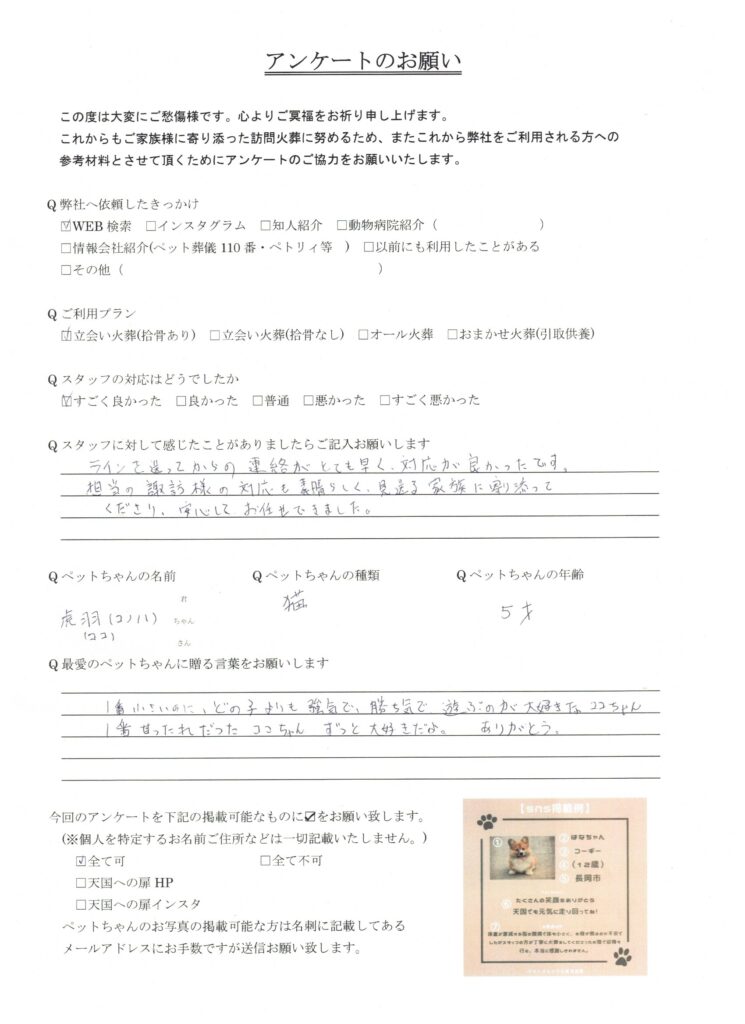 アンケートのお願い
この度は大変にご愁傷様です。心よりご冥福をお祈り申し上げます。
これからもご家族様に寄り添った訪問火葬に努めるため、またこれから弊社をご利用される方への
参考材料とさせて頂くためにアンケートのご協力をお願いいたします。
Q 弊社へ依頼したきっかけ
☑WEB 検索 □インスタグラム □知人紹介 □動物病院紹介（ ）
□情報会社紹介(ペット葬儀 110 番・ペトリィ等 ) □以前にも利用したことがある
□その他（ ）
Q ご利用プラン
☑立会い火葬(拾骨あり) □立会い火葬(拾骨なし) □オール火葬 □おまかせ火葬(引取供養)
Q スタッフの対応はどうでしたか
☑すごく良かった □良かった □普通 □悪かった □すごく悪かった
Q スタッフに対して感じたことがありましたらご記入お願いします
ラインを送ってからの連絡がとても早く、対応が良かったです。
担当の諏訪様の対応も素晴らしく、見送る家族に寄り添って
くださり、安心してお任せできました。
Q ペットちゃんの名前 Q ペットちゃんの種類 Q ペットちゃんの年齢
虎羽(コノハ) ちゃん 猫 5才
(ココ) さん
Q 最愛のペットちゃんに贈る言葉をお願いします
1番小さいのに、どの子よりも強気で、勝ち気で遊ぶのが大好きなココちゃん
1番甘ったれだったココちゃん ずっと大好きだよ。 ありがとう。
今回のアンケートを下記の掲載可能なものに☑をお願い致します。
(※個人を特定するお名前ご住所などは一切記載いたしません。)
☑全て可 □全て不可
□天国への扉 HP
□天国への扉インスタ
ペットちゃんのお写真の掲載可能な方は名刺に記載してある
メールアドレスにお手数ですが送信お願い致します。
【sns掲載例】
① ② はなちゃん
③ コーギー
④ （12歳）
⑤ 長岡市
たくさんの笑顔をありがとう
⑥ 天国でも元気に走り回ってね！
⑦